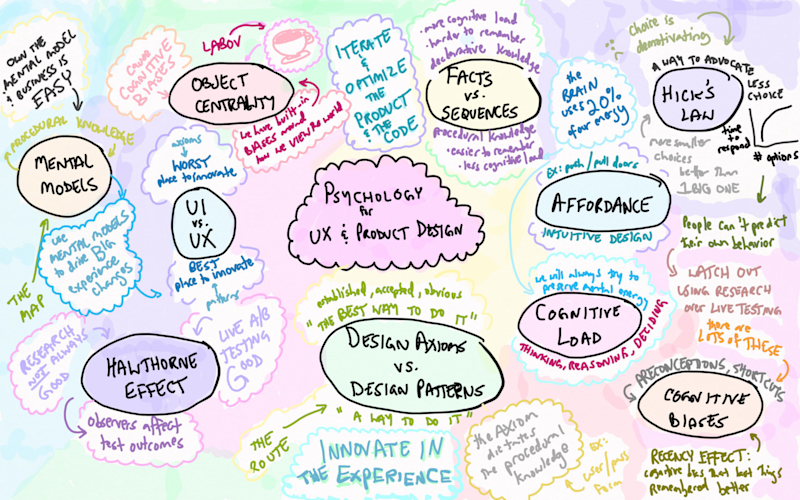 OWN THE
MENTAL MODEL
& BUSINESS IS
EASY
PROCEDURAL KNOWLEDGE
MENTAL
MODELS
use
MENTAL MODELS
to drive BIG
experience
changes
THE MAP
CAUSE
COGNITIVE
BIASES
LABOV
OBJECT
CENTRALITY
we have built-in
BIASES around
how we VIEW the world
axioms
WORST
place to innovate
UI
vs.
UX
BEST
place to innovate
patterns
ITERATE
&
OPTIMIZE
THE
PRODUCT
& THE
CODE
• more cognitive load
• harder to remember
declarative knowledge
FACTS
vs.
SEQUENCES
procedural knowledge
• easier to remember
• less cognitive load
the
BRAIN
uses 20%
of our energy
Choice is
demotivating
A WAY TO ADVOCATE
HICK'S
LAW
LESS
CHOICE
time
to
respond
# options
many smaller
choices
better than
1 BIG ONE
PSYCHOLOGY
for
UX & PRODUCT DESIGN
EX: push/pull doors
AFFORDANCE
INTUITIVE DESIGN
People can't predict
their own behavior
WATCH OUT
USING RESEARCH
OVER LIVE TESTING
there are
LOTS OF THESE
we will always try to
preserve mental energy
COGNITIVE
LOAD
THINKING, REASONING, DECIDING
PRECONCEPTIONS, SHORTCUTS
COGNITIVE
BIASES
RECENCY EFFECT:
cognitive bias that last things
remembered better
RESEARCH
NOT ALWAYS
GOOD
LIVE A/B
TESTING
GOOD
HAWTHORNE
EFFECT
observers affect
test outcomes
established, accepted, obvious
"THE BEST WAY TO DO IT"
DESIGN AXIOMS
vs.
DESIGN PATTERNS
"A WAY TO DO IT"
THE
ROUTE
INNOVATE IN
THE EXPERIENCE
the AXIOM
dictates
the procedural
knowledge
EX:
user/pass
form